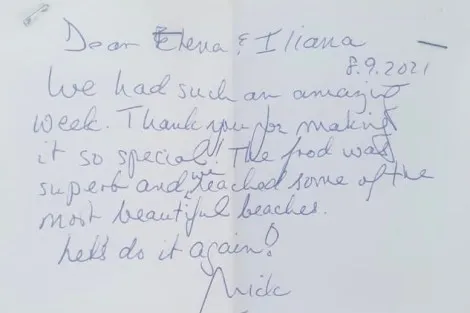 Dear Elena & Iliana
8.9.2021
We had such an amazing
week. Thank you for making
it so special! The food was
superb and we reached some of the
most beautiful beaches.
Let's do it again!
Nick